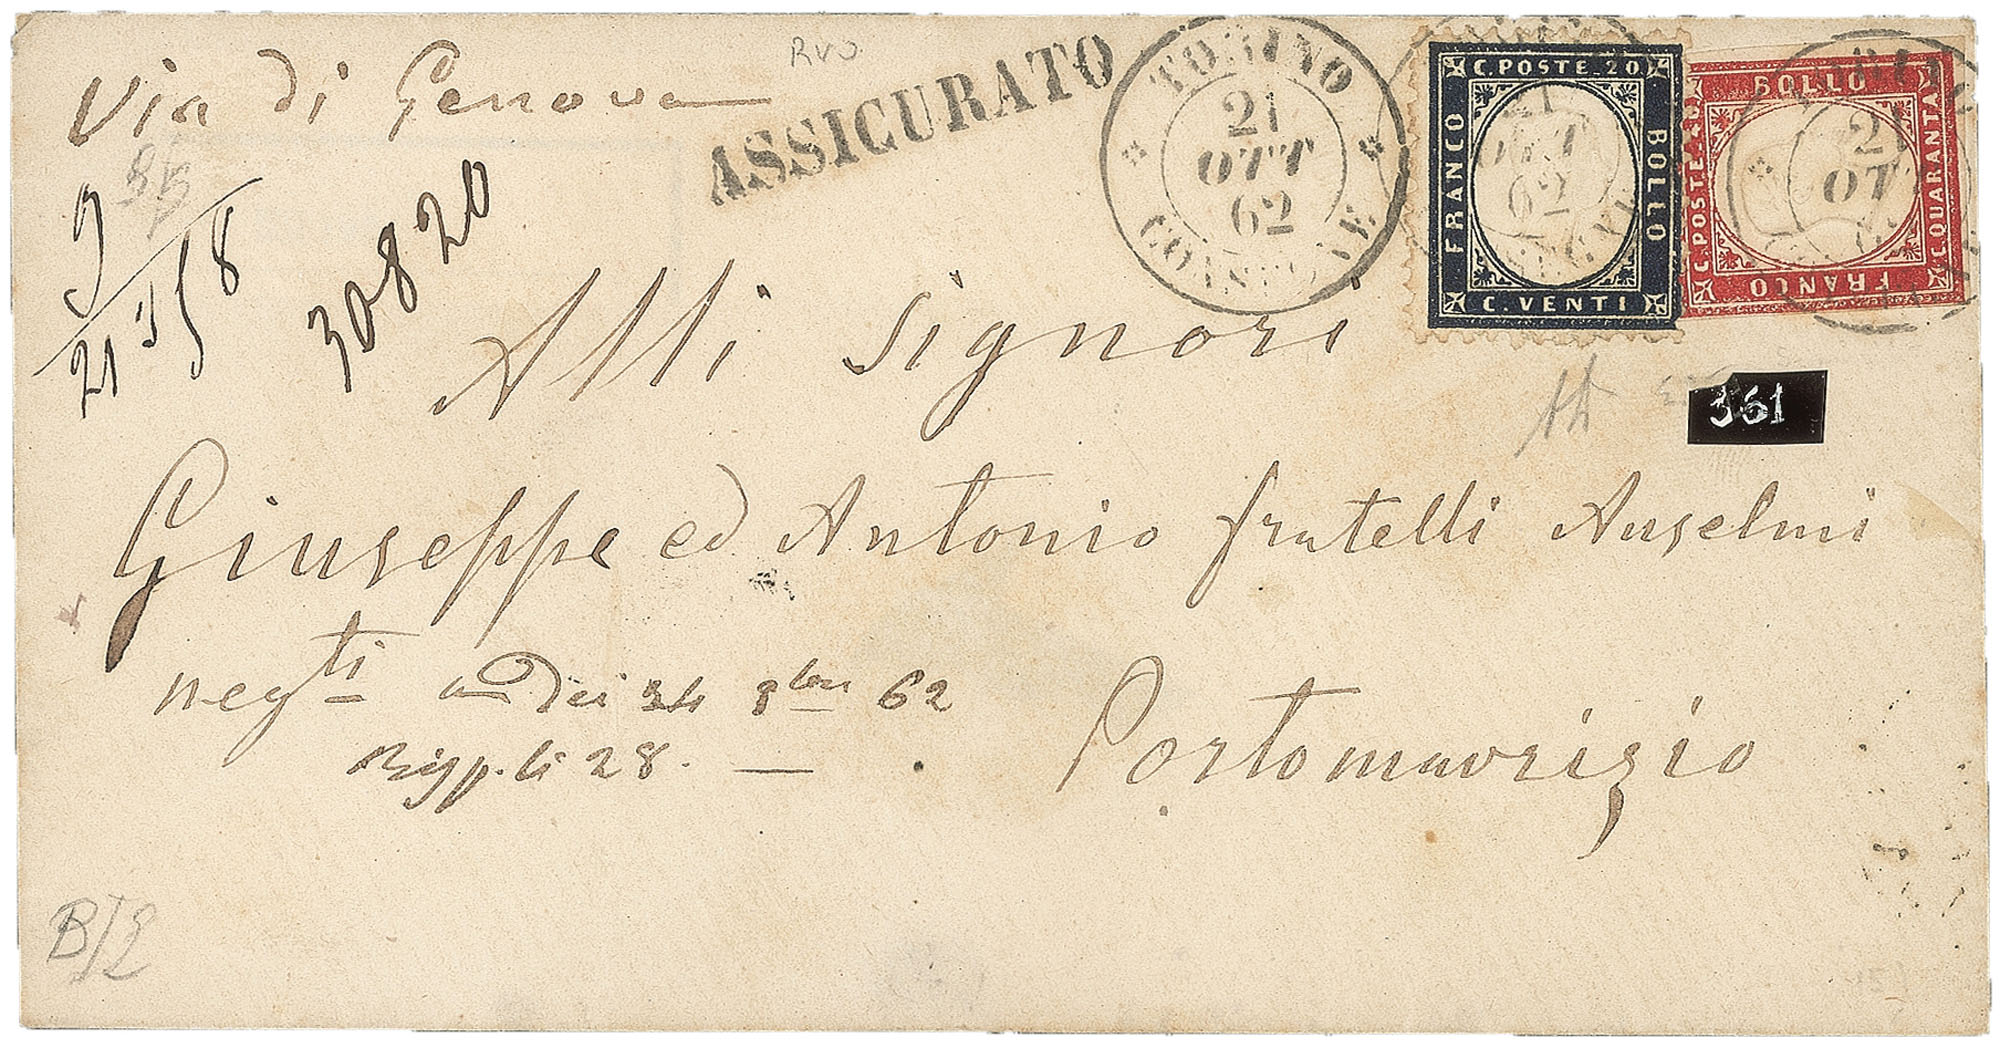 Via di Genova
RVO
ASSICURATO
TORINO
21
OTT
62
CONSEGNE
C. POSTE. 20
FRANCO
BOLLO
C. VENTI
21
OTT
62
BOLLO
C. POSTE 40
C. QUARANTA
FRANCO
21
OTT
9
21
58
30820
Alli Signori
361
Giuseppe ed Antonio fratelli Anselmi
neg.ti dei 24 8bre 62
Risp. li 28.
Portomaurizio